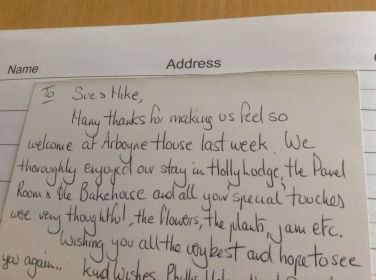 Name Address
To Sue & Mike,
Many thanks for making us feel so
welcome at Arboyne House last week. We
thoroughly enjoyed our stay in Hollylodge, the Panel
Room & the Bakehouse and all your special touches
were very thoughtful, the flowers, the plants, jam etc.
Wishing you all the very best and hope to see
you again.. Kind Wishes